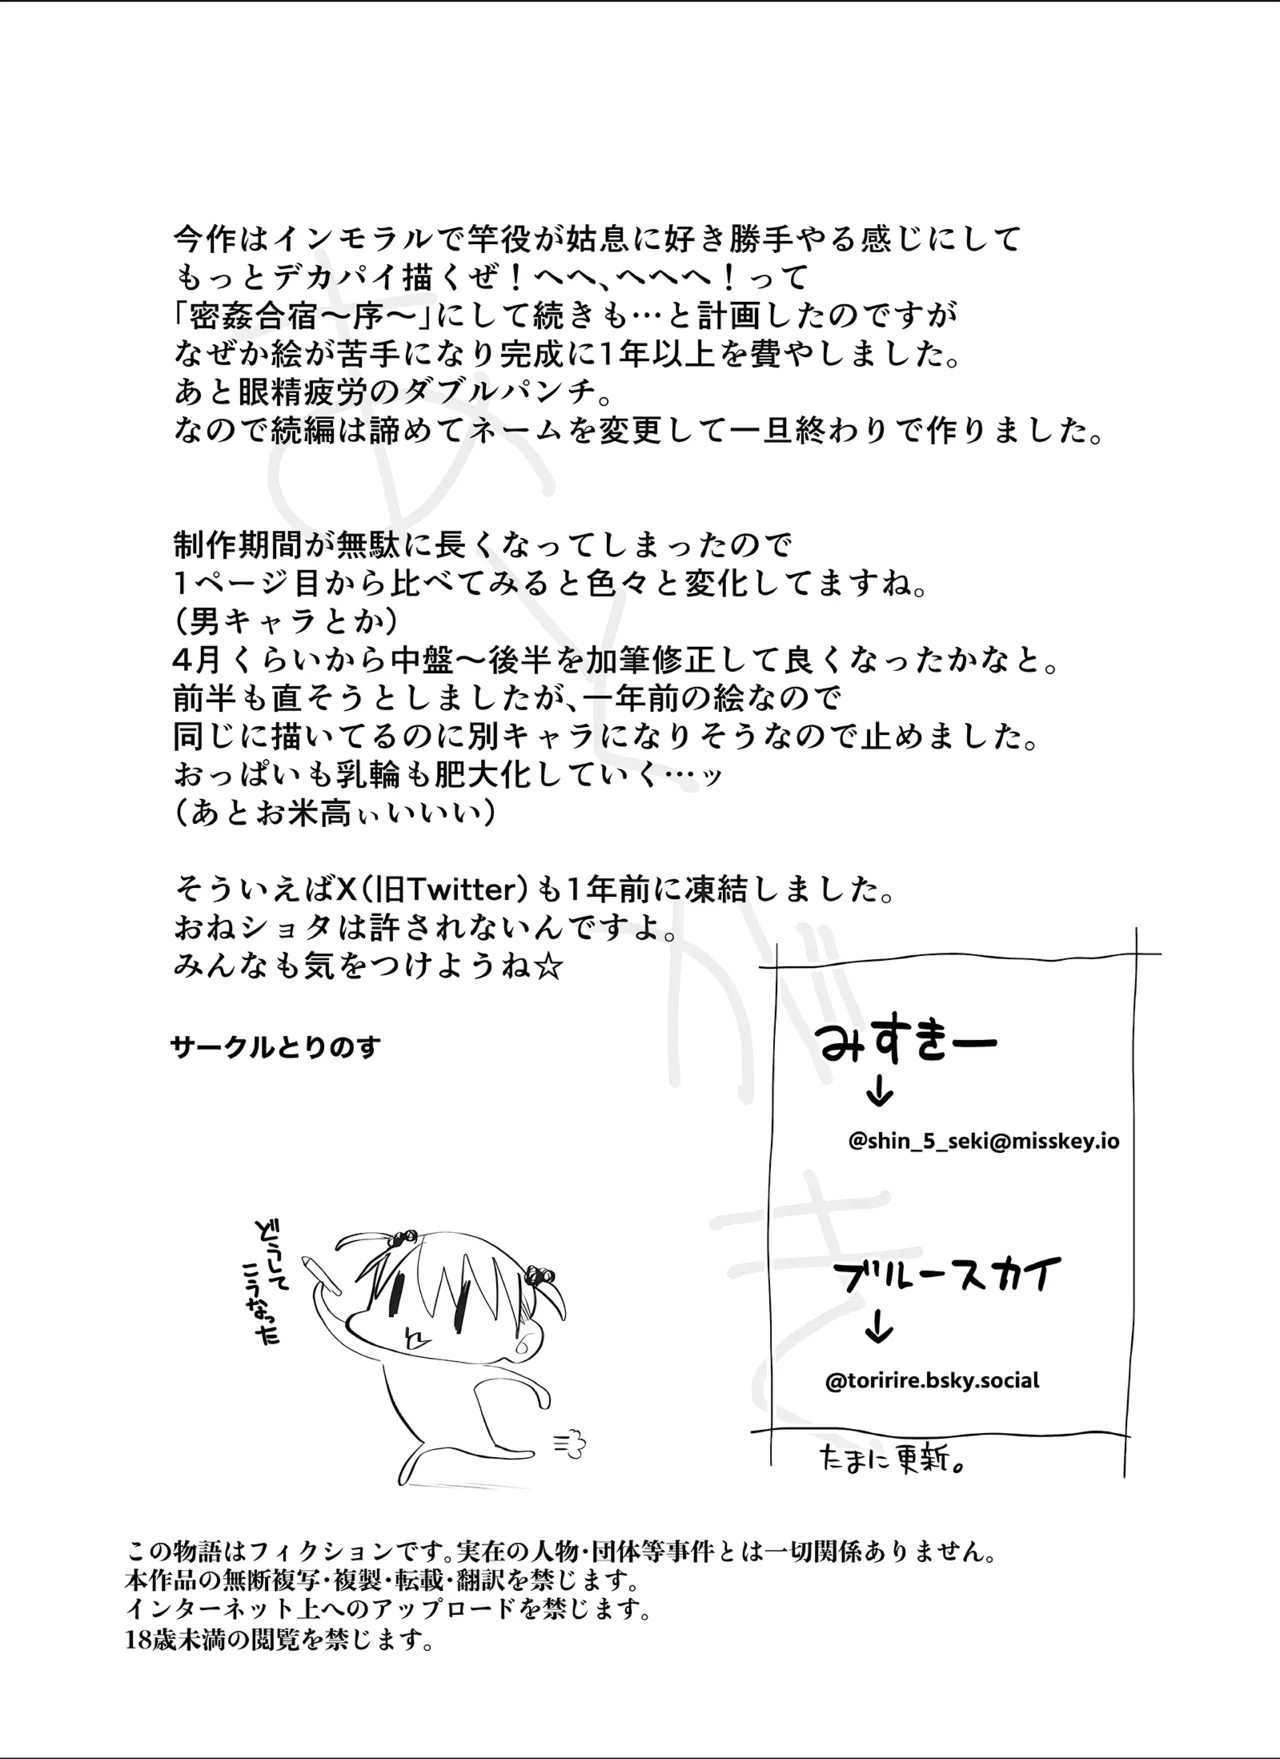 今作はインモラルで竿役が姑息に好き勝手やる感じにして
もっとデカパイ描くぜ！へへ、へへへ！って
「密姦合宿～序～」にして続きも…と計画したのですが
なぜか絵が苦手になり完成に1年以上を費やしました。
あと眼精疲労のダブルパンチ。
なので続編は諦めてネームを変更して一旦終わりで作りました。
制作期間が無駄に長くなってしまったので
1ページ目から比べてみると色々と変化してますね。
（男キャラとか）
4月くらいから中盤～後半を加筆修正して良くなったかなと。
前半も直そうとしましたが、一年前の絵なので
同じに描いてるのに別キャラになりそうなので止めました。
おっぱいも乳輪も肥大化していく…ッ
（あとお米高ぃいいい）
そういえばX（旧Twitter）も1年前に凍結しました。
おねショタは許されないんですよ。
みんなも気をつけようね☆
サークルとりのす
あとがき
みすきー
↓
@shin_5_seki@misskey.io
ブルースカイ
↓
@toririre.bsky.social
たまに更新。
どうして
こうなった
この物語はフィクションです。実在の人物・団体等事件とは一切関係ありません。
本作品の無断複写・複製・転載・翻訳を禁じます。
インターネット上へのアップロードを禁じます。
18歳未満の閲覧を禁じます。